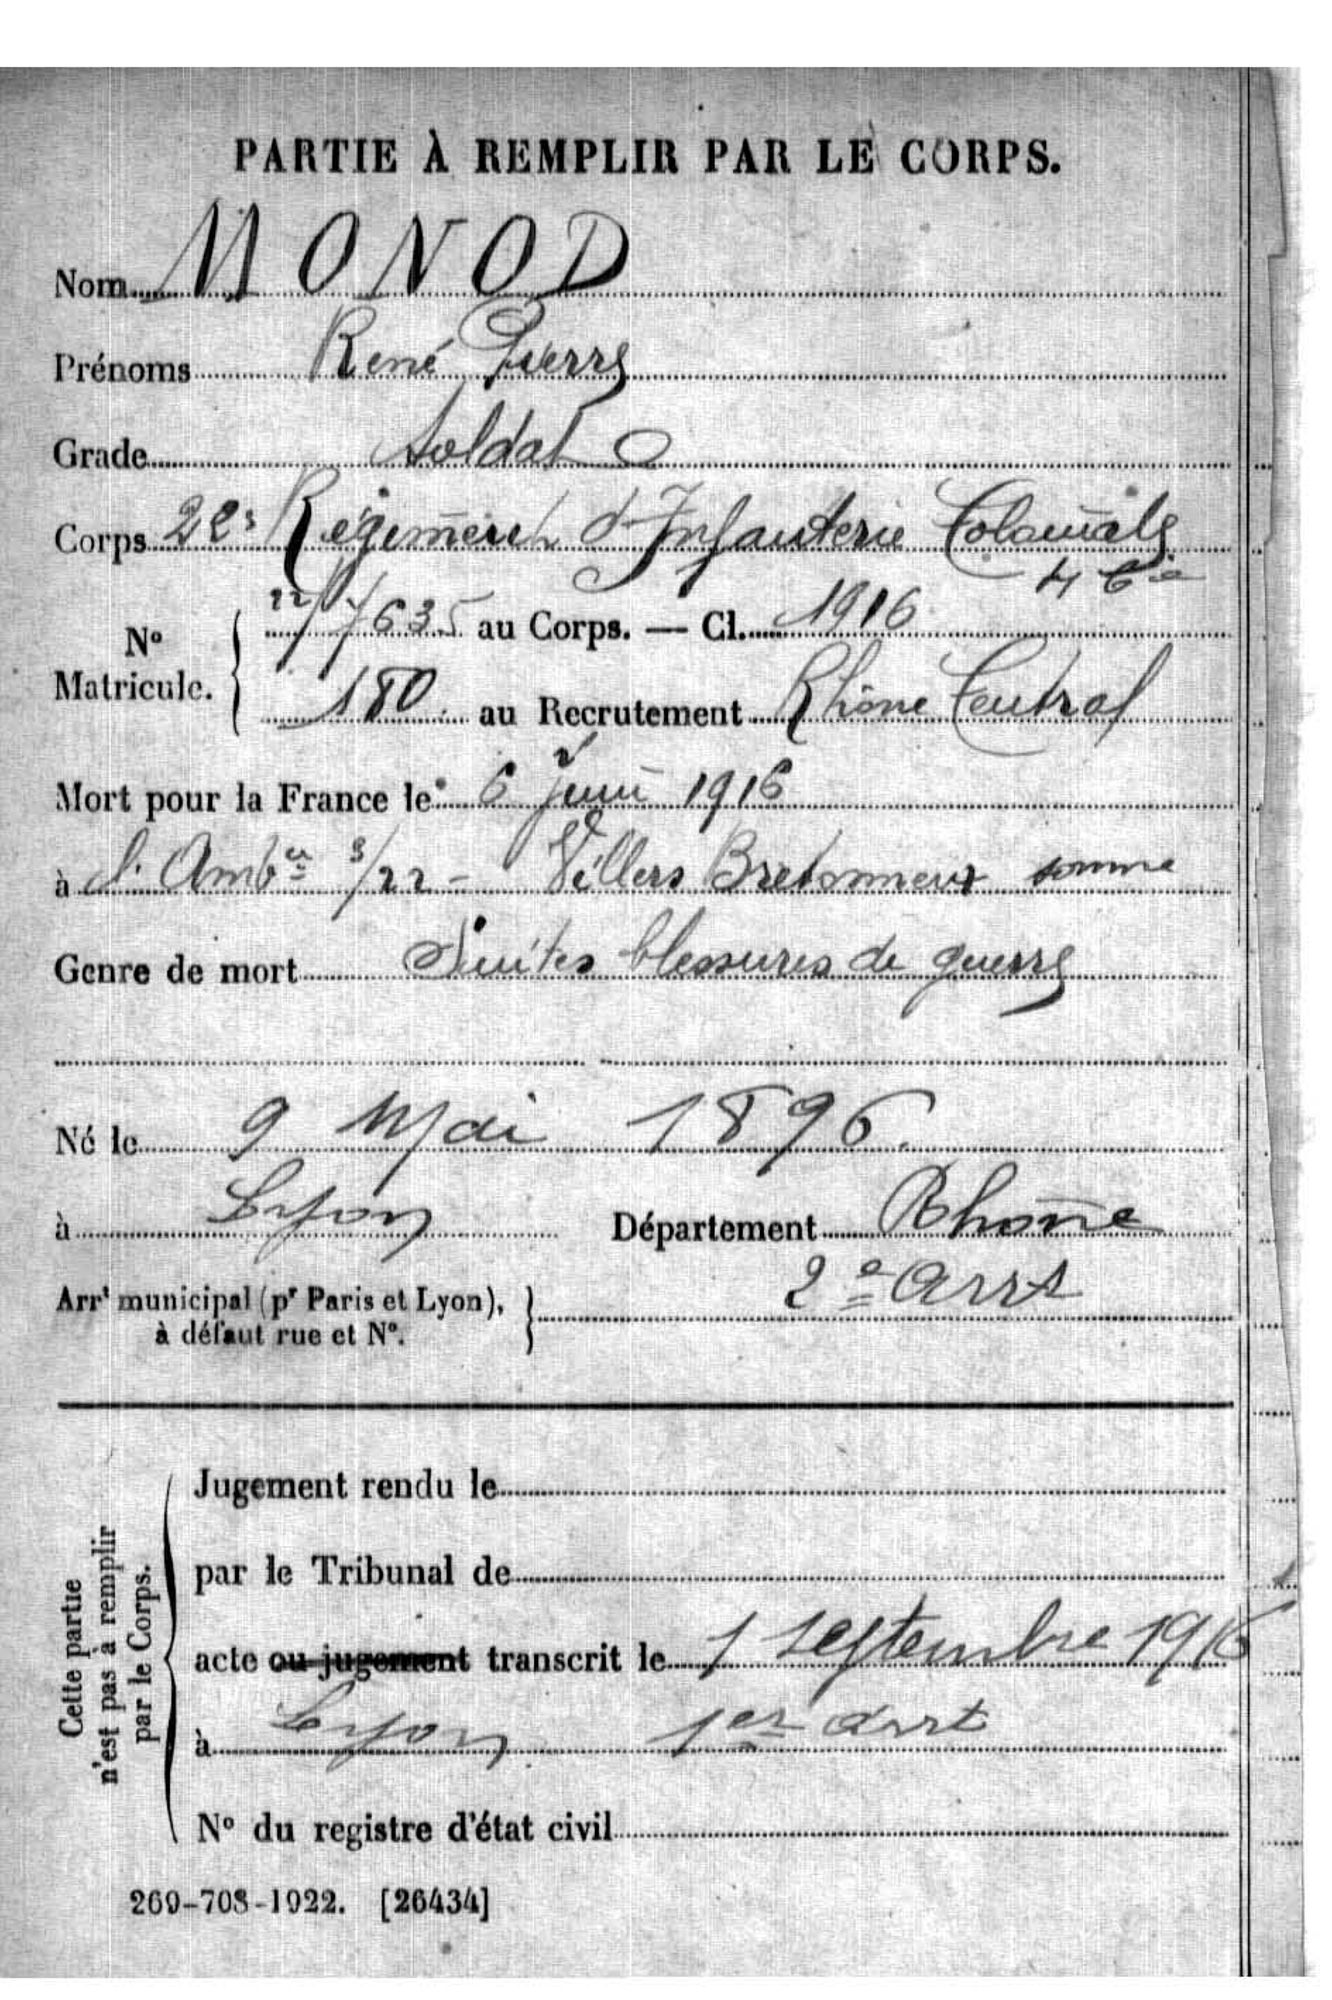 PARTIE À REMPLIR PAR LE CORPS.
Nom MONOD
Prénoms René Pierre
Grade Soldat
Corps 22e Régiment d'Infanterie Coloniale
4 Cie
No Matricule. 22/7635 au Corps. — Cl. 1916
180. au Recrutement Rhône Central
Mort pour la France le 6 Juin 1916
à l'Ambce 3/22 - Villers Bretonneux somme
Genre de mort Suites blessures de guerre
Né le 9 Mai 1896.
à Lyon Département Rhône
Arrt municipal (pr Paris et Lyon), à défaut rue et No. 2e arrt
Cette partie n'est pas à remplir par le Corps.
Jugement rendu le
par le Tribunal de
acte ou jugement transcrit le 1 septembre 1916
à Lyon 1er arrt
No du registre d'état civil
269-708-1922. [26434]